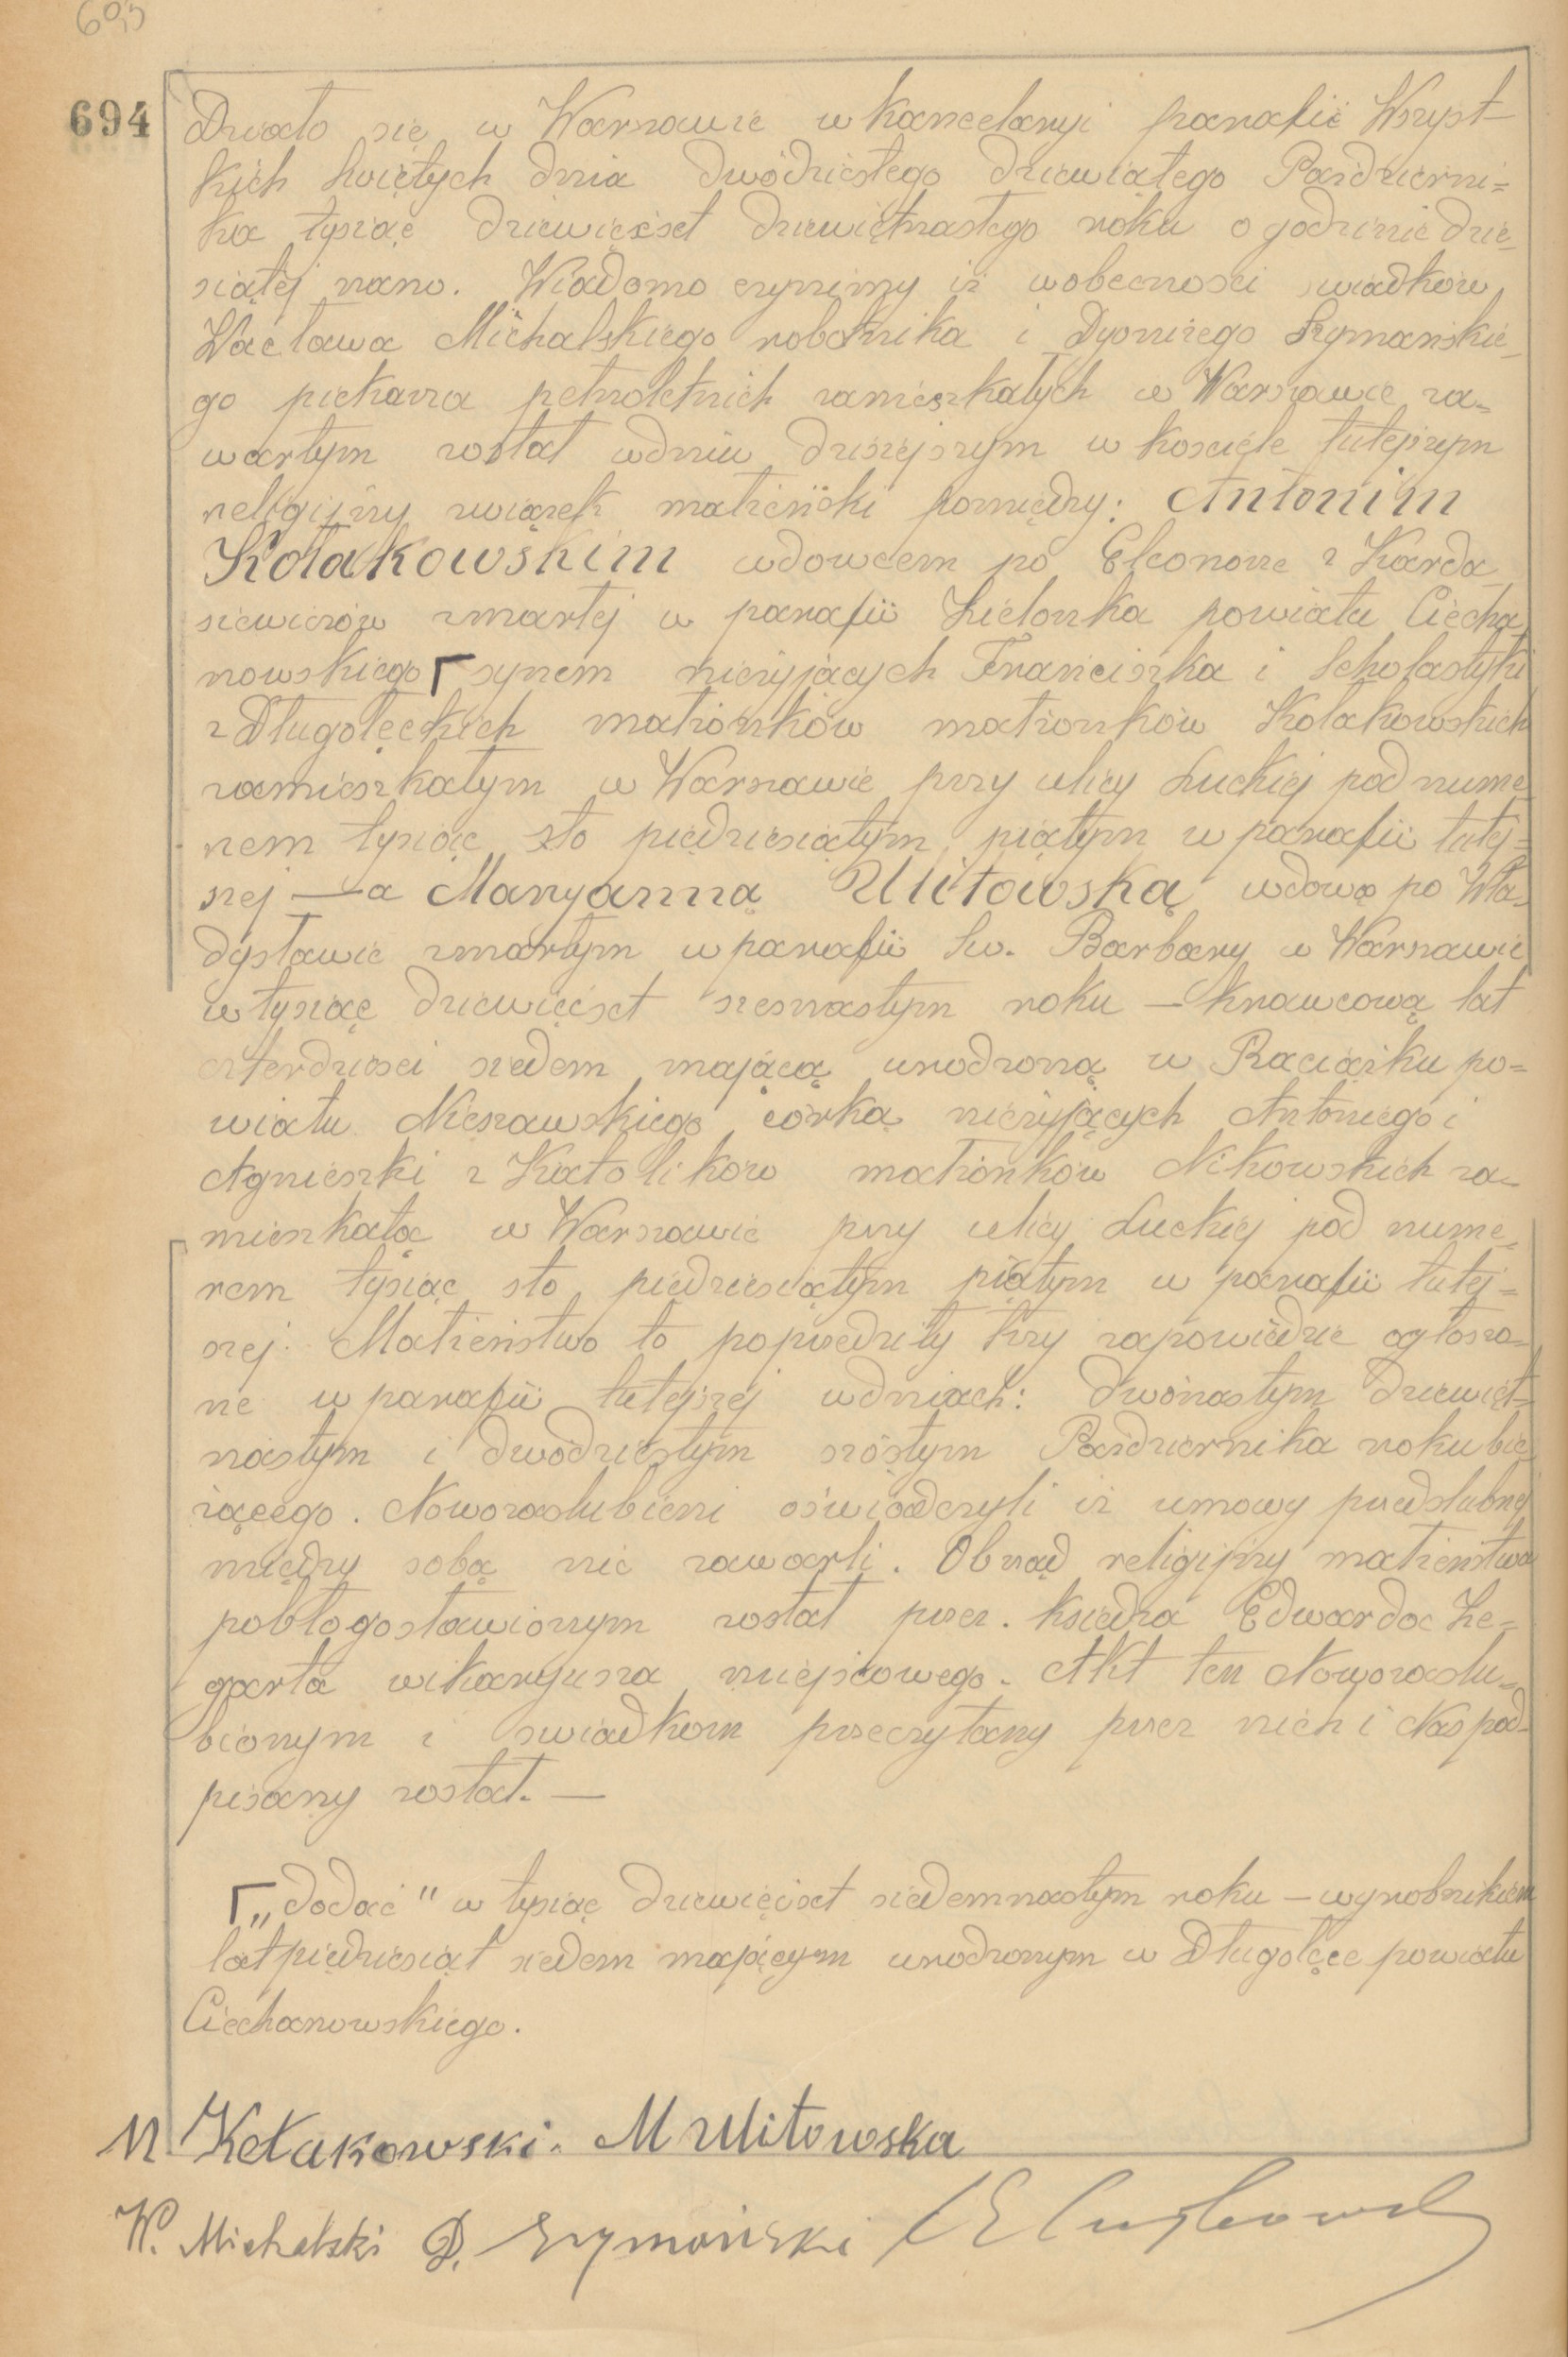 694
Działo się w Warszawie w kancelaryi parafii Wszyst-
kich Świętych dnia dwódziestego dziewiątego Październi=
ka tysiąc dziewięćset dziewiętnastego roku o godzinie dzie-
siątej rano. Wiadomo czynimy iż w obecności świadków
Wacława Michalskiego robotnika i Dyonizego Szymańskie-
go piekarza pełnoletnich zamieszkałych w Warszawie za-
wartym został w dniu dzisiejszym w kościele tutejszym
religijny związek małżeński pomiędzy: Antonim
Kołakowskim wdowcem po Eleonorze z Karda-
siewiczów zmarłej w parafii Zielonka powiatu Ciecha-
nowskiego Γ synem nieżyjących Franciszka i Scholastyki
z Długołęckich małżonków małżonków Kołakowskich
zamieszkałym w Warszawie przy ulicy Łuckiej pod nume-
rem tysiąc sto piędziesiątym piątym w parafii tutej=
szej — a Maryanną Ulitowską wdową po Wła-
dysławie zmarłym w parafii Św. Barbary w Warszawie
w tysiąc dziewięćset szesnastym roku — krawcową lat
czterdzieści siedem mającą urodzoną w Raciążku po=
wiatu Nieszawskiego córką nieżyjących Antoniego i
Agnieszki z Katolików małżonków Nikowskich za-
mieszkałą w Warszawie przy ulicy Łuckiej pod nume-
rem tysiąc sto pięдziesiątym piątym w parafii tutej=
szej. Małżeństwo to poprzedziły trzy zapowiedzie ogłoszo-
ne w parafii tutejszej w dniach: dwónastym dziewięt-
nastym i dwódziestym szóstym Października roku bie-
żącego. Nowozaslubieni oświadczyli iż umowy przedślubnej
między sobą nie zawarli. Obrząd religijny małżeństwa
pobłogosławionym został przez. księdza Edwarda Że-
garta wikaryusza miejscowego. Akt ten Nowozaślu-
bionym i świadkom przeczytany przez nich i Nas pod-
pisany został. —
Γ „dodać" w tysiąc dziewięćset siedemnastym roku — wyrobnikiem
lat pięдziesiąt siedem mającym urodzonym w Długołęce powiatu
Ciechanowskiego.
Kołakowski. M Ulitowska
W. Michalski D. Szymański